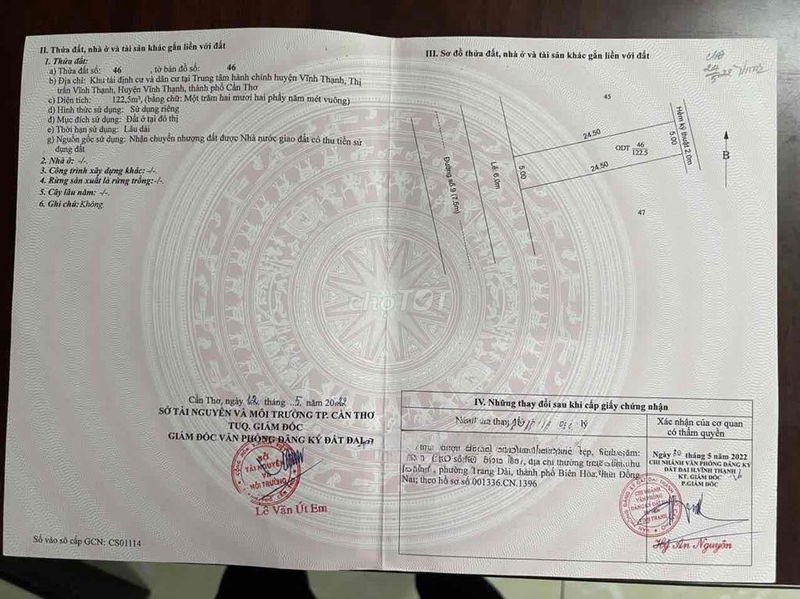 II. Thửa đất, nhà ở và tài sản khác gắn liền với đất
1. Thửa đất:
a) Thửa đất số: 46 , tờ bản đồ số: 46
b) Địa chỉ: Khu tái định cư và dân cư tại Trung tâm hành chính huyện Vĩnh Thạnh, Thị
trấn Vĩnh Thạnh, Huyện Vĩnh Thạnh, thành phố Cần Thơ
c) Diện tích: 122,5m², (bằng chữ: Một trăm hai mươi hai phẩy năm mét vuông)
d) Hình thức sử dụng: Sử dụng riêng
đ) Mục đích sử dụng: Đất ở tại đô thị
e) Thời hạn sử dụng: Lâu dài
g) Nguồn gốc sử dụng: Nhận chuyển nhượng đất được Nhà nước giao đất có thu tiền sử
dụng đất
2. Nhà ở: -/-.
3. Công trình xây dựng khác: -/-.
4. Rừng sản xuất là rừng trồng: -/-.
5. Cây lâu năm: -/-.
6. Ghi chú: Không.
Cần Thơ, ngày tháng 5 năm 2022
SỞ TÀI NGUYÊN VÀ MÔI TRƯỜNG TP. CẦN THƠ
TUQ. GIÁM ĐỐC
GIÁM ĐỐC VĂN PHÒNG ĐĂNG KÝ ĐẤT ĐAI
SỞ
TÀI NGUYÊN
VÀ
MÔI TRƯỜNG
Lê Văn Út Em
Số vào sổ cấp GCN: CS01114
III. Sơ đồ thửa đất, nhà ở và tài sản khác gắn liền với đất
45
24.50
Hẻm kỹ thuật 2.0m
5.00
ODT 46
122.5
B
24.50
5.00
Lề: 6.0m
Đường số 9 (7.5m)
47
chợTỐT
IV. Những thay đổi sau khi cấp giấy chứng nhận
lý
Xác nhận của cơ quan
có thẩm quyền
địa chỉ thường trú
phường Trảng Dài, thành phố Biên Hòa, tỉnh Đồng
Nai; theo hồ sơ số 001336.CN.1396
Ngày tháng 5 năm 2022
CHI NHÁNH VĂN PHÒNG ĐĂNG KÝ
ĐẤT ĐAI H.VĨNH THẠNH
KT. GIÁM ĐỐC
P.GIÁM ĐỐC
CHI NHÁNH
VĂN PHÒNG
ĐĂNG KÝ ĐẤT ĐAI